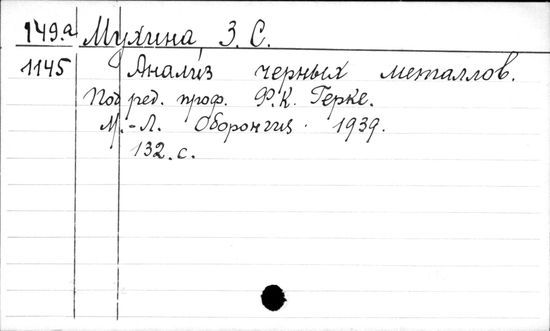 149.а Мухина, З. С.
1145 Анализ черных металлов.
Под ред. проф. Ф.К. Герке.
М.-Л. Оборонгиз. 1939.
132.с.